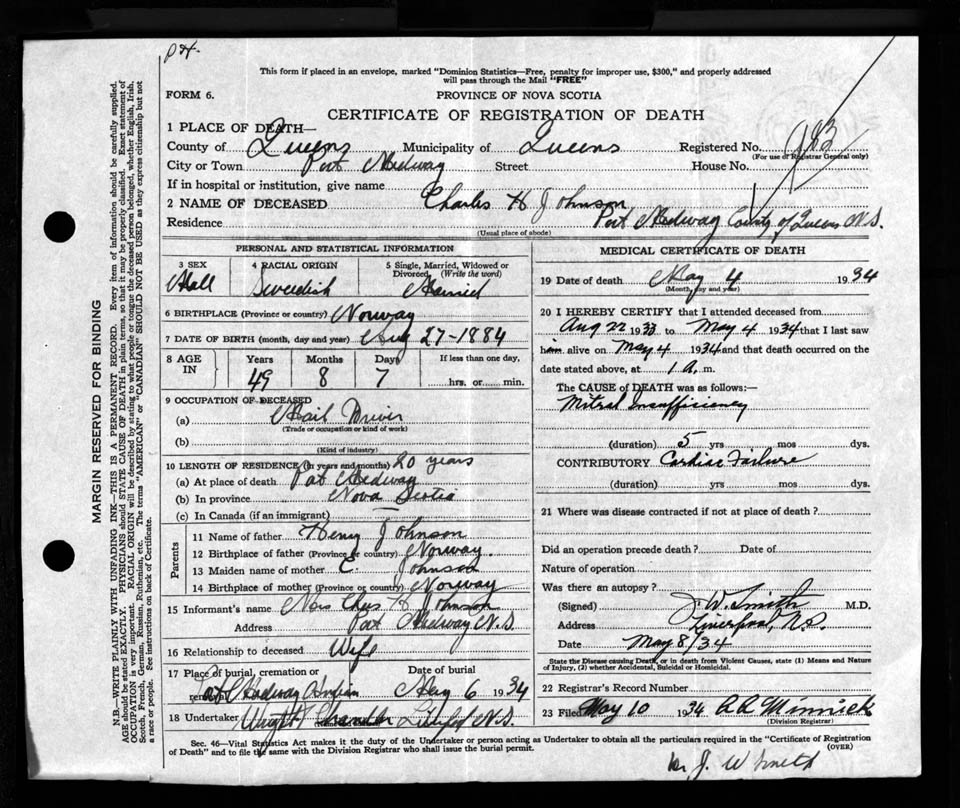 P.H.
This form if placed in an envelope, marked "Dominion Statistics—Free, penalty for improper use, $300," and properly addressed
will pass through the Mail "FREE"
FORM 6.
PROVINCE OF NOVA SCOTIA
CERTIFICATE OF REGISTRATION OF DEATH
1 PLACE OF DEATH—
County of Queens Municipality of Queens Registered No. 983
(For use of Registrar General only)
City or Town Port Medway Street House No.
If in hospital or institution, give name
2 NAME OF DECEASED Charles H Johnson
Residence Port Medway County of Queens N.S.
(Usual place of abode)
PERSONAL AND STATISTICAL INFORMATION
3 SEX 4 RACIAL ORIGIN 5 Single, Married, Widowed or
Divorced, (Write the word)
Mall Swedish Married
6 BIRTHPLACE (Province or country) Norway
7 DATE OF BIRTH (month, day and year) Aug 27-1884
8 AGE IN Years Months Days If less than one day,
49 8 7 hrs. or min.
9 OCCUPATION OF DECEASED
(a) Mail Driver
(Trade or occupation or kind of work)
(b)
(Kind of industry)
10 LENGTH OF RESIDENCE (in years and months) 20 years
(a) At place of death Port Medway
(b) In province Nova Scotia
(c) In Canada (if an immigrant) —
Parents
11 Name of father Henry Johnson
12 Birthplace of father (Province or country) Norway.
13 Maiden name of mother C. Johnson
14 Birthplace of mother (Province or country) Norway
15 Informant's name Mrs Chas H Johnson
Address Port Medway N.S.
16 Relationship to deceased Wife
17 Place of burial, cremation or Date of burial
removal Port Medway May 6 1934
18 Undertaker Wright N.S.
MEDICAL CERTIFICATE OF DEATH
19 Date of death May 4 1934
(Month, day and year)
20 I HEREBY CERTIFY that I attended deceased from
Aug 22 1933 to May 4 1934 that I last saw
him alive on May 4 1934 and that death occurred on the
date stated above, at 1 A. m.
The CAUSE of DEATH was as follows:—
Mitral Insufficiency
(duration) 5 yrs mos dys.
CONTRIBUTORY Cardiac Failure
(duration) yrs mos dys.
21 Where was disease contracted if not at place of death?
Did an operation precede death? Date of
Nature of operation
Was there an autopsy?
(Signed) J. W. Smith M.D.
Address Liverpool, N.S.
Date May 8/34
State the Disease causing Death, or in death from Violent Causes, state (1) Means and Nature
of Injury, (2) whether Accidental, Suicidal or Homicidal.
22 Registrar's Record Number
23 Filed May 10 1934 Minnick
(Division Registrar)
Sec. 46—Vital Statistics Act makes it the duty of the Undertaker or person acting as Undertaker to obtain all the particulars required in the "Certificate of Registration
of Death" and to file the same with the Division Registrar who shall issue the burial permit.
(OVER)
Dr J. W Smith
MARGIN RESERVED FOR BINDING
N.B.—WRITE PLAINLY WITH UNFADING INK—THIS IS A PERMANENT RECORD. Every item of information should be carefully supplied.
AGE should be stated EXACTLY. PHYSICIANS should STATE CAUSE OF DEATH in plain terms, so that it may be properly classified. Exact statement of
OCCUPATION is very important. RACIAL ORIGIN will be described by stating to what people or tongue the deceased person belonged, whether English, Irish,
Scotch, French, German, Russian, Ruthenian, etc. The terms "AMERICAN" or "CANADIAN" SHOULD NOT BE USED as they express citizenship but not
a race or people. See instructions on back of Certificate.